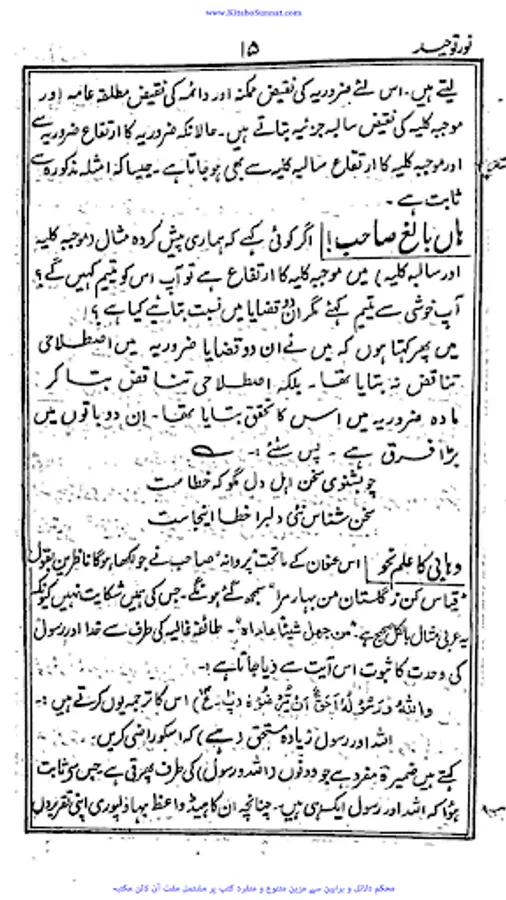 www.KitaboSunnat.com
نور توحید
۱۵
لیتے ہیں۔ اس لئے ضروریہ کی نقیض ممکنہ اور دائمہ کی نقیض مطلقہ عامہ اور
موجبہ کلیہ کی نقیض سالبہ جزئیہ بتاتے ہیں۔ حالانکہ ضروریہ کا ارتفاع ضروریہ سے
اور موجبہ کلیہ کا ارتفاع سالبہ کلیہ سے بھی ہو جاتا ہے۔ جیسا کہ امثلہ مذکورہ سے
ثابت ہے۔
ہاں بالغ صاحب! اگر کوئی کہے کہ ہماری پیش کردہ مثال (موجبہ کلیہ
اور سالبہ کلیہ) میں موجبہ کلیہ کا ارتفاع ہے تو آپ اس کو قیم کہیں گے؟
آپ خوشی سے قیم کہئے مگر ان دو قضایا میں نسبت بتائیے کیا ہے؟!
میں پھر کہتا ہوں کہ میں نے ان دو قضایا ضروریہ میں اصطلاحی
تناقض نہ بتایا تھا۔ بلکہ اصطلاحی تناقض بتا کر
مادہ ضروریہ میں اس کا تحقق بتایا تھا۔ ان دو باتوں میں
بڑا فرق ہے۔ پس سنئے :۔ ؎
چو بشنوی سخن اہل دل مگو کہ خطا ست
سخن شناس نئی دلبرا خطا اینجا ست
وہابی کا علم نحو اس عنوان کے ماتحت "پروانہ" صاحب نے جو لکھا ہوگا ناظرین بقول
"قیاس کن ز گلستان من بہار مرا" سمجھ گئے ہونگے۔ جس کی ہمیں شکایت نہیں کیونکہ
یہ عربی مثال بالکل صحیح ہے "من جھل شیئا عاداہ"۔ طائفہ غالیہ کی طرف سے خدا اور رسول
کی وحدت کا ثبوت اس آیت سے دیا جاتا ہے :۔
وَاللّٰهُ وَرَسُوْلُهٗ اَحَقُّ اَنْ يُّرْضُوْهُ (پ۔ ع) اس کا ترجمہ یوں کرتے ہیں :۔
اللہ اور رسول زیادہ مستحق (ہے) کہ اسکو راضی کریں۔
کہتے ہیں ضمیر ہٗ مفرد ہے جو دونوں (اللہ و رسول) کی طرف پھرتی ہے جس سے ثابت
ہؤا کہ اللہ اور رسول ایک ہی ہیں۔ چنانچہ ان کا ہیڈ واعظ بہاولپوری اپنی تقریروں
محکم دلائل و براہین سے مزین متنوع و منفرد کتب پر مشتمل مفت آن لائن مکتبہ